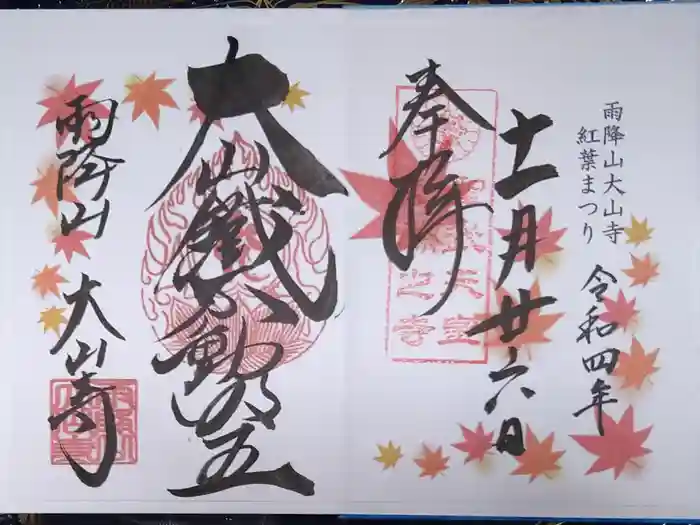 雨降山大山寺
紅葉まつり
令和四年
十一月廿六日
奉拝
大山鐵不動尊
雨降山
大山寺